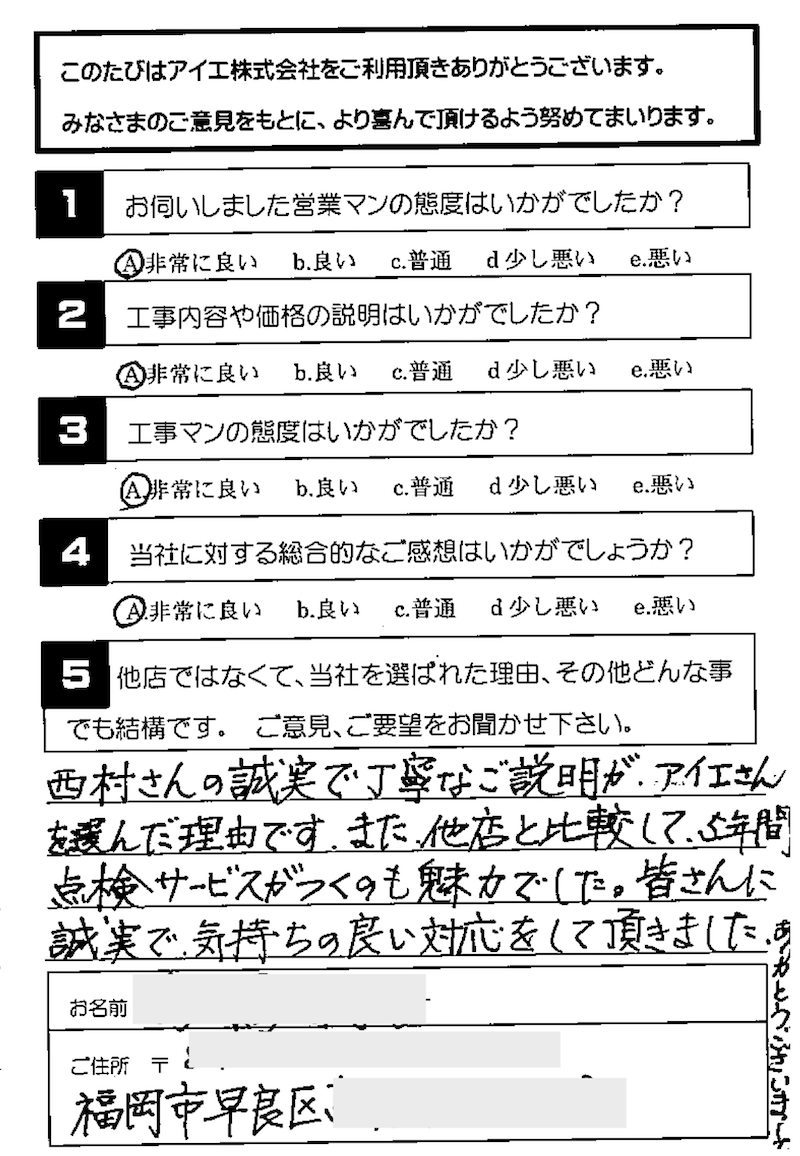 このたびはアイエ株式会社をご利用頂きありがとうございます。
みなさまのご意見をもとに、より喜んで頂けるよう努めてまいります。
1 お伺いしました営業マンの態度はいかがでしたか？
A 非常に良い b.良い c.普通 d 少し悪い e.悪い
2 工事内容や価格の説明はいかがでしたか？
A 非常に良い b.良い c.普通 d 少し悪い e.悪い
3 工事マンの態度はいかがでしたか？
A 非常に良い b.良い c.普通 d 少し悪い e.悪い
4 当社に対する総合的なご感想はいかがでしょうか？
A.非常に良い b.良い c.普通 d 少し悪い e.悪い
5 他店ではなくて、当社を選ばれた理由、その他どんな事
でも結構です。 ご意見、ご要望をお聞かせ下さい。
西村さんの誠実で丁寧なご説明が、アイエさん
を選んだ理由です。また、他店と比較して、5年間
点検サービスがつくのも魅力でした。皆さんに
誠実で、気持ちの良い対応をして頂きました。
ありがとうございます
お名前
ご住所 〒
福岡市早良区